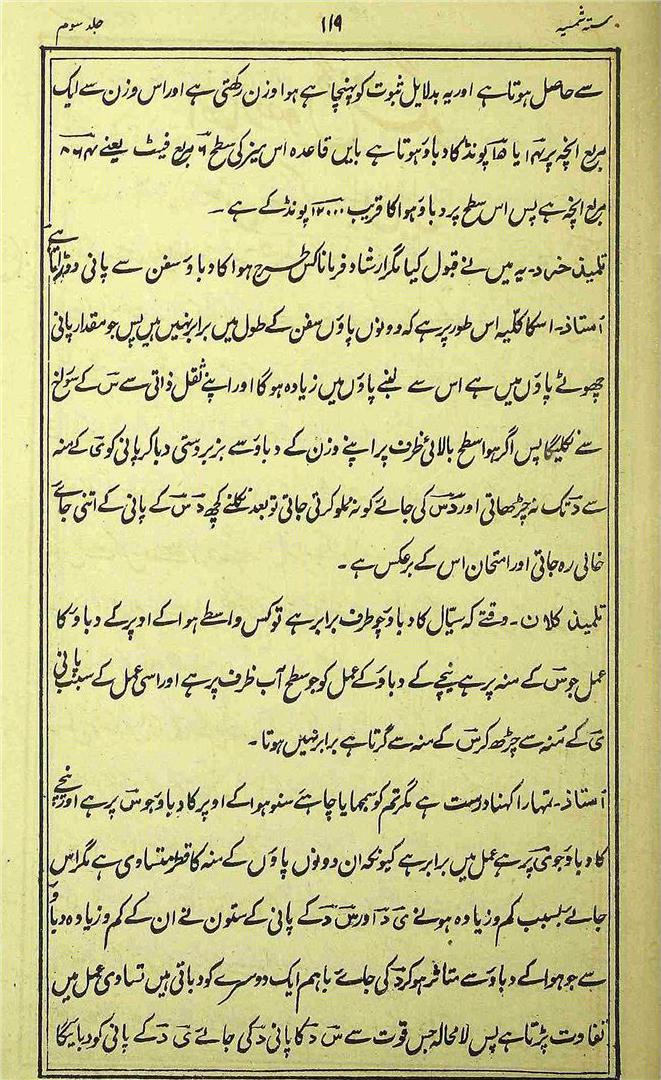 ستہ شمسیہ ۱۱۹ جلد سوم
سے حاصل ہوتا ہے اور یہ بدلایل ثبوت کو پہنچا ہے ہوا وزن رکھتی ہے اور اس وزن سے ایک
مربع انچہ پر ۱۴ یا ۱۵ پونڈ کا دباو ہوتا ہے بایں قاعدہ اس میز کی سطح ۶ مربع فیٹ یعنے ۸۶۴
مربع انچہ ہے پس اس سطح پر دباو ہوا کا قریب ۱۲۰۰۰ پونڈ کے ہے ۔
تلمیذ خرد ۔ یہ میں نے قبول کیا مگر ارشاد فرمانا کس طرح ہوا کا دباو سفن سے پانی دوڑاتا ہے
اُستاذ ۔ اسکا کلیہ اس طور پر ہے کہ دونوں پاوں سفن کے طول میں برابر نہیں ہیں پس جو مقدار پانی
چھوٹے پاوں میں ہے اس سے لنبے پاوں میں زیادہ ہوگا اور اپنے ثقل ذاتی سے س کے سوراخ
سے نکلیگا پس اگر ہوا سطح بالائی ظرف پر اپنے وزن کے دباو سے بزبردستی دباکر پانی کو ی کے منہ
سے د تک نہ چڑھاتی اور د س کی جائے کو نہ مملو کرتی جاتی تو بعد نکلنے کچھ د س کے پانی کے اتنی جائے
خالی رہ جاتی اور امتحان اس کے برعکس ہے ۔
تلمیذ کلان ۔ وقتے کہ سیّال کا دباو چوطرف برابر ہے تو کس واسطے ہوا کے اوپر کے دباو کا
عمل جو س کے منہ پر ہے نیچے کے دباو کے عمل کو جو سطح آب ظرف پر ہے اور اسی عمل کے سبب پانی
ی کے مُنہ سے چڑھ کر س کے منہ سے گرتا ہے برابر نہیں ہوتا ۔
اُستاذ ۔ تمہارا کہنا درست ہے مگر تم کو سمجھایا چاہئے سنو ہوا کے اوپر کا دباو جو س پر ہے اور نیچے
کا دباو جو ی پر ہے عمل میں برابر ہے کیونکہ ان دونوں پاوں کے منہ کا قطر متساوی ہے مگر اس
جائے بسبب کم و زیادہ ہونے ی د اور س د کے پانی کے ستون نے ان کے کم و زیادہ دباو
سے جو ہوا کے دباو سے متاثر ہوکر د کی جائے باہم ایک دوسرے کو دباتی ہیں تساوی عمل میں
تفاوت پڑتا ہے پس لامحالہ جس قوت سے س د کا پانی د کی جائے ی د کے پانی کو دبائیگا